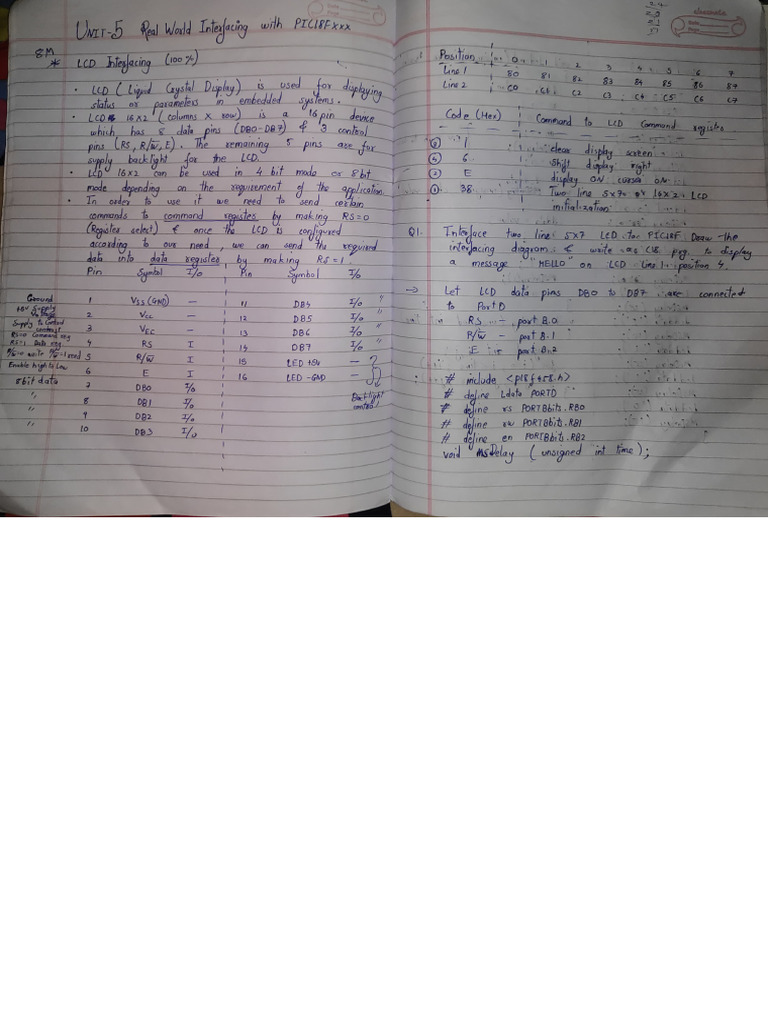 UNIT-5 Real World Interfacing with PIC18Fxxx
8M
* LCD Interfacing (100%)
• LCD (Liquid Crystal Display) is used for displaying
status or parameters in embedded systems.
• LCD 16x2 (columns x row) is a 16 pin device
which has 8 data pins (DB0-DB7) & 3 control
pins (RS, R/W, E). The remaining 5 pins are for
supply backlight for the LCD.
• LCD 16x2 can be used in 4 bit mode or 8 bit
mode depending on the requirement of the application
• In order to use it we need to send certain
commands to command register by making RS=0
(Register select) & once the LCD is configured
according to our need, we can send the required
data into data register by making RS=1.
Pin Symbol I/O Pin Symbol I/o
Ground 1 VSS (GND) — 11 DB4 I/o "
+5V Supply 2 Vcc — 12 DB5 I/o "
Supply to control contrast 3 VEC — 13 DB6 I/o "
RS=0 Command reg 4 RS I 14 DB7 I/o "
RS=1 Data reg
R/W=0 write R/W=1 read 5 R/W I 15 LED +5V —
Enable high to low 6 E I 16 LED -GND —
8bit data 7 DB0 I/o Backlight control
" 8 DB1 I/o
" 9 DB2 I/o
" 10 DB3 I/o
classmate
Date
Page
Position 0 1 2 3 4 5 6 7
Line 1 80 81 82 83 84 85 86 87
Line 2 C0 C1 C2 C3 C4 C5 C6 C7
Code (Hex) Command to LCD Command register
1 clear display screen
6 Shift display right
E display ON cursor ON
38 Two line 5x7 16x2 LCD
initialization
Q1. Interface two line 5x7 LCD to PIC18F Draw the
interfacing diagram & write a C18 prg. to display
a message "HELLO" on LCD line 1 position 4.
→ Let LCD data pins DB0 to DB7 are connected
to Port D
RS — port B.0
R/W — port B.1
E port B.2
# include <p18f458.h>
# define Ldata PORTD
# define rs PORTBbits.RB0
# define rw PORTBbits.RB1
# define en PORTBbits.RB2
void msDelay (unsigned int time);